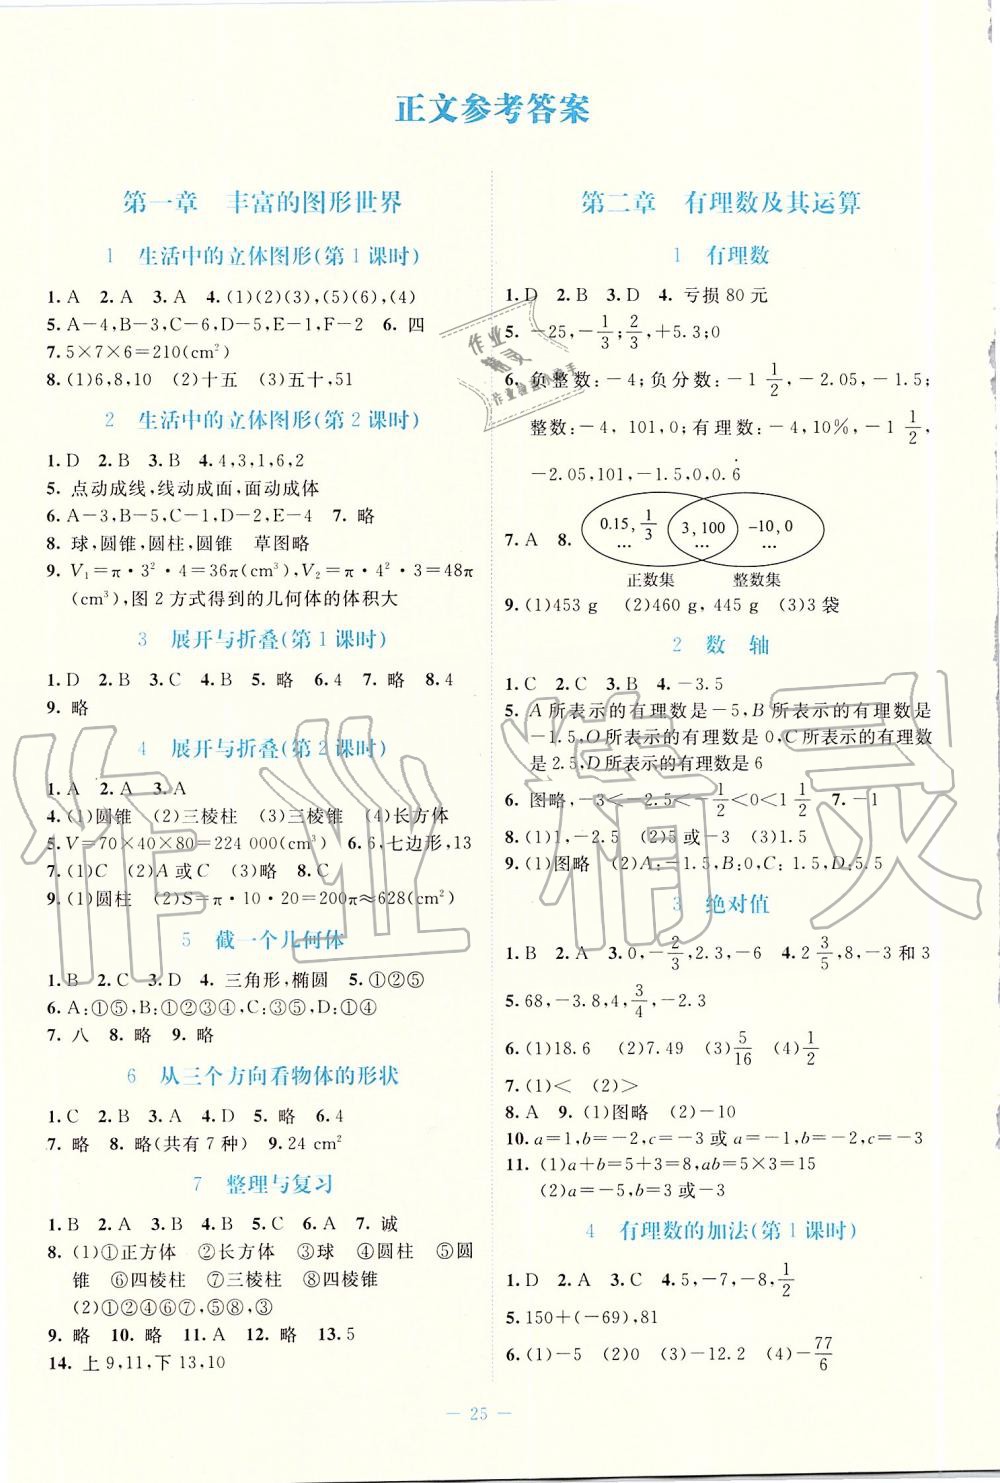 正文参考答案
第一章 丰富的图形世界
1 生活中的立体图形(第1课时)
1. A 2. A 3. A 4. (1)(2)(3),(5)(6),(4)
5. A-4,B-3,C-6,D-5,E-1,F-2 6. 四
7. 5×7×6=210(cm²)
8. (1)6,8,10 (2)十五 (3)五十,51
2 生活中的立体图形(第2课时)
1. D 2. B 3. B 4. 4,3,1,6,2
5. 点动成线,线动成面,面动成体
6. A-3,B-5,C-1,D-2,E-4 7. 略
8. 球,圆锥,圆柱,圆锥 草图略
9. V₁=π·3²·4=36π(cm³),V₂=π·4²·3=48π
(cm³),图2方式得到的几何体的体积大
3 展开与折叠(第1课时)
1. D 2. B 3. C 4. B 5. 略 6. 略 7. 略 8. 4
9. 略
4 展开与折叠(第2课时)
1. A 2. A 3. A
4. (1)圆锥 (2)三棱柱 (3)三棱锥 (4)长方体
5. V=70×40×80=224 000(cm³) 6. 6,七边形,13
7. (1)C (2)A或C (3)略 8. C
9. (1)圆柱 (2)S=π·10·20=200π≈628(cm²)
5 截一个几何体
1. B 2. C 3. D 4. 三角形,椭圆 5. ①②⑤
6. A:①⑤,B:①②③④,C:①②③⑤,D:①④
7. 八 8. 略 9. 略
6 从三个方向看物体的形状
1. C 2. B 3. A 4. D 5. 略 6. 4
7. 略 8. 略(共有7种) 9. 24 cm²
7 整理与复习
1. B 2. A 3. B 4. B 5. C 6. A 7. 诚
8. (1)①正方体 ②长方体 ③球 ④圆柱 ⑤圆
锥 ⑥四棱柱 ⑦三棱柱 ⑧四棱锥
(2)①②④⑥⑦,⑤⑧,③
9. 略 10. 略 11. A 12. 略 13. 5
14. 上9,11,下13,10
第二章 有理数及其运算
1 有理数
1. D 2. B 3. D 4. 亏损80元
5. -25,-1/3;2/3,+5.3;0
6. 负整数:-4;负分数:-1 1/2,-2.05,-1.5;
整数:-4,101,0;有理数:-4,10%,-1 1/2,
-2.05,101,-1.5,0,0.6̇
7. A 8. 0.15,1/3 … 3,100 … -10,0 …
正数集 整数集
9. (1)453 g (2)460 g,445 g (3)3袋
2 数 轴
1. C 2. C 3. B 4. -3.5
5. A所表示的有理数是-5,B所表示的有理数是
-1.5,O所表示的有理数是0,C所表示的有理数
是2.5,D所表示的有理数是6
6. 图略,-3<-2.5<-1/2<0<1 1/2 7. -1
8. (1)1,-2.5 (2)5或-3 (3)1.5
9. (1)图略 (2)A:-1.5,B:0,C:1.5,D:5.5
3 绝对值
1. B 2. A 3. 0,-2/3,2.3,-6 4. 2 3/5,8,-3和3
5. 68,-3.8,4,3/4,-2.3
6. (1)18.6 (2)7.49 (3)5/16 (4)1/2
7. (1)< (2)>
8. A 9. (1)图略 (2)-10
10. a=1,b=-2,c=-3或a=-1,b=-2,c=-3
11. (1)a+b=5+3=8,ab=5×3=15
(2)a=5,b=3或-3
4 有理数的加法(第1课时)
1. D 2. A 3. C 4. 5,-7,-8,1/2
5. 150+(-69),81
6. (1)-5 (2)0 (3)-12.2 (4)-77/6
— 25 —
作业精灵